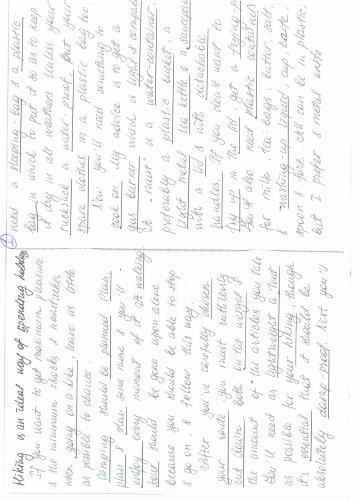 Hiking is an ideal way of spending holidays
If you want to get maximum pleasure
& the minimum shocks & headaches
when going on a hike, leave as little
as possible to chance.
Camping should be planned. Plan,
plan & plan some more & you'll
enjoy every moment of it. A walking
tour should be gone upon alone
because you should be able to stop
& go on, & follow this way.
After you've carefully chosen
your route you must carefully
cut down both on the weight &
the amount of the articles you take
You'll need as lightweight a tent
as possible for your hiking though
it's essential that it should be
absolutely damp proof. Next you'll
①
need a sleeping-bag & a plastic
bag in which to put it so as to keep
it dry in all weathers. Unless your
rucksack is water-proof, put your
spare clothes in a plastic bag too.
Now you'll need something to
cook on. My advice is to get a
gas burner which is light & compact
A "must" is a water-container,
preferably a plastic bucket, a
light metal tea kettle & a saucepan
with a lid & with detachable
handles. If you don't want to
fry up in the lid, get a frying p
You'll also need plastic containers
for milk, tea-bags, butter, salt,
& washing-up liquid, cup, knife,
spoon & fork still can be in plastic,
but I prefer a metal knife